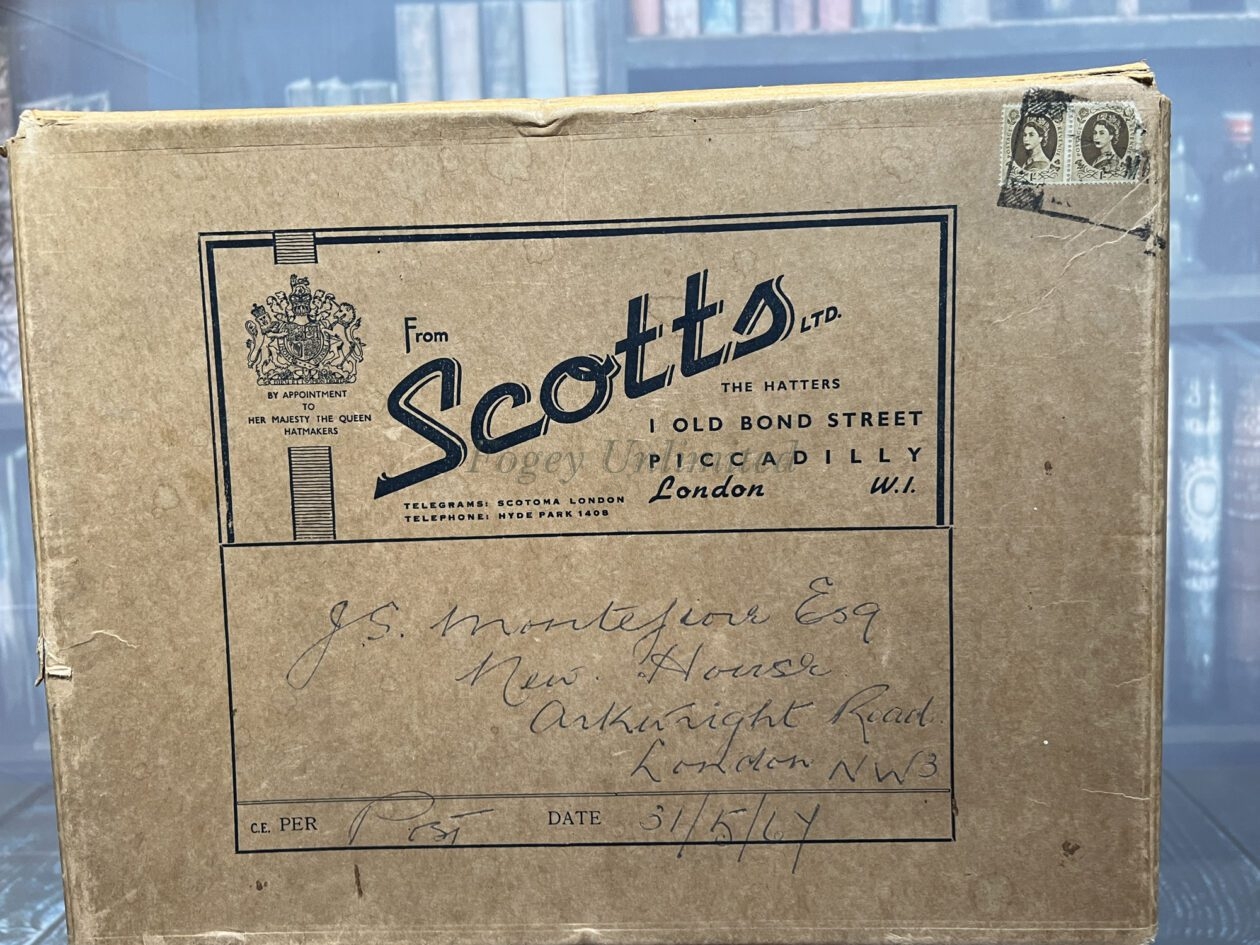 From
Scotts LTD.
THE HATTERS
1 OLD BOND STREET
PICCADILLY
London W.1.
BY APPOINTMENT
TO
HER MAJESTY THE QUEEN
HATMAKERS
TELEGRAMS: SCOTOMA LONDON
TELEPHONE: HYDE PARK 1408
Fogey Unlimited
J.S. Montefiore Esq
New House
Arkwright Road
London NW3
C.E. PER Post DATE 31/5/67